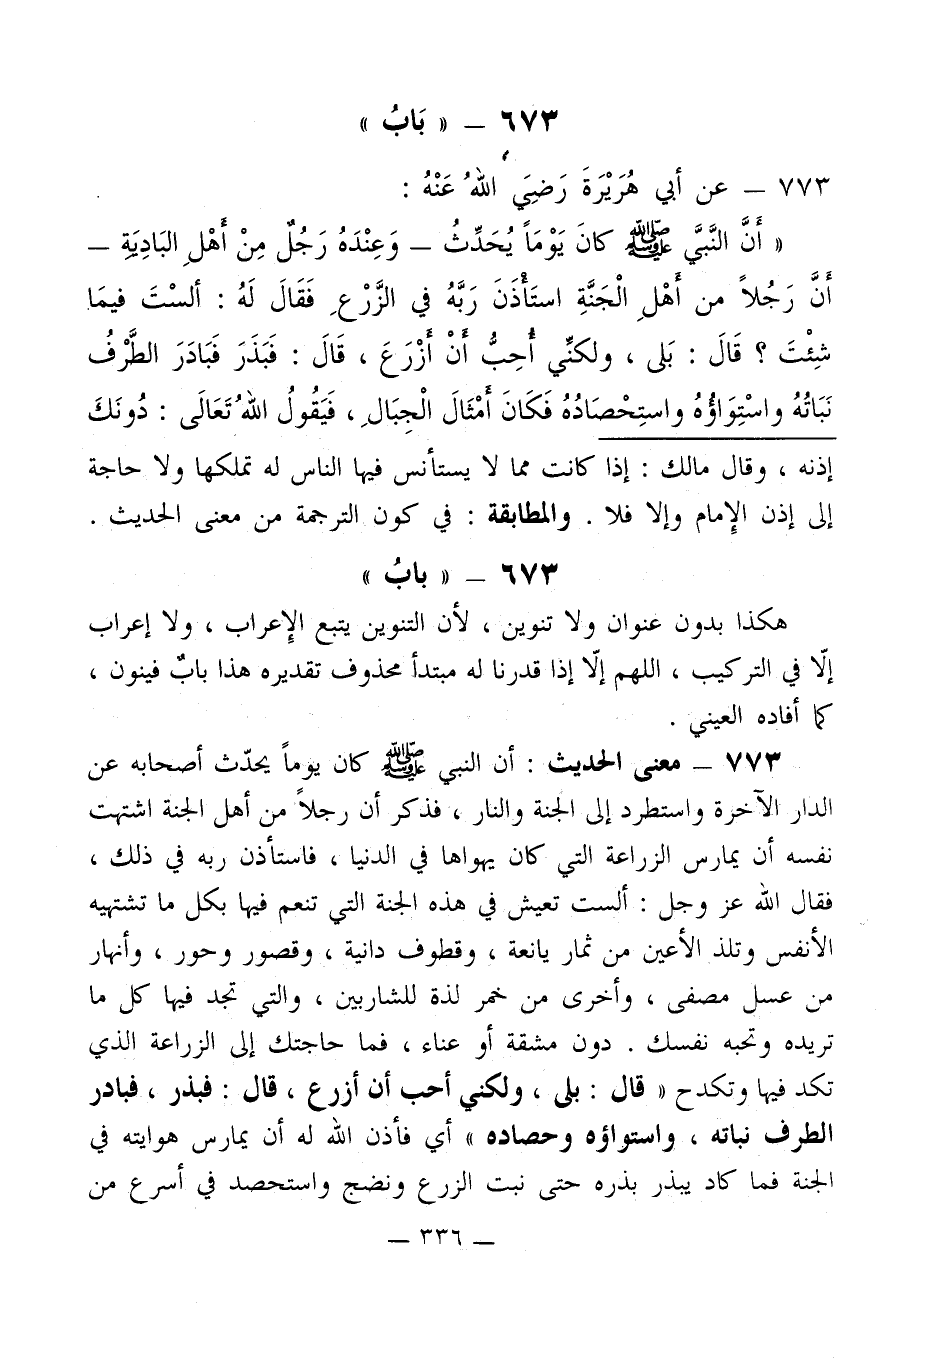 ٦٧٣ – « بَابُ »
٧٧٣ – عن أبي هُرَيْرَةَ رَضِيَ اللهُ عَنْهُ :
« أَنَّ النَّبَّي ﷺ كانَ يَوْمَاً يُحَدِّثُ – وَعِنْدَهُ رَجُلٌ مِنْ أَهْلِ البَادِيَةِ –
أَنَّ رَجُلاً من أَهْلِ الْجَنَّةِ استَأْذَنَ رَبَّهُ في الزَّرْعِ فَقَالَ لَهُ : ألسْتَ فيمَا
شِئْتَ ؟ قَالَ : بَلى ، ولكنِّي أُحِبُّ أَنْ أَزْرَعَ ، قَالَ : فَبَذَرَ فَبَادَرَ الطَّرْفُ
نَبَاتُهُ واسْتِوَاؤُهُ واستِحْصَادُهُ فَكَانَ أَمْثَالَ الْجِبَالِ ، فَيَقُولُ اللهُ تَعَالَى : دُونَكَ
إذنه ، وقال مالك : إذا كانت مما لا يستأنس فيها الناس له تملكها ولا حاجة
إلى إذن الإمام وإلا فلا . والمطابقة : في كون الترجمة من معنى الحديث .
٦٧٣ – « بابُ »
هكذا بدون عنوان ولا تنوين ، لأن التنوين يتبع الإعراب ، ولا إعراب
إلّا في التركيب ، اللهم إلّا إذا قدرنا له مبتدأ محذوف تقديره هذا بابٌ فينون ،
كما أفاده العيني .
٧٧٣ – معنى الحديث : أن النبي ﷺ كان يوماً يحدّث أصحابه عن
الدار الآخرة واستطرد إلى الجنة والنار ، فذكر أن رجلاً من أهل الجنة اشتهت
نفسه أن يمارس الزراعة التي كان يهواها في الدنيا ، فاستأذن ربه في ذلك ،
فقال الله عز وجل : ألست تعيش في هذه الجنة التي تنعم فيها بكل ما تشتهيه
الأنفس وتلذ الأعين من ثمار يانعة ، وقطوف دانية ، وقصور وحور ، وأنهار
من عسل مصفى ، وأخرى من خمر لذة للشاربين ، والتي تجد فيها كل ما
تريده وتحبه نفسك . دون مشقة أو عناء ، فما حاجتك إلى الزراعة الذي
تكد فيها وتكدح « قال : بلى ، ولكني أحب أن أزرع ، قال : فبذر ، فبادر
الطرف نباته ، واستواؤه وحصاده » أي فأذن الله له أن يمارس هوايته في
الجنة فما كاد يبذر بذره حتى نبت الزرع ونضج واستحصد في أسرع من
– ٣٣٦ –